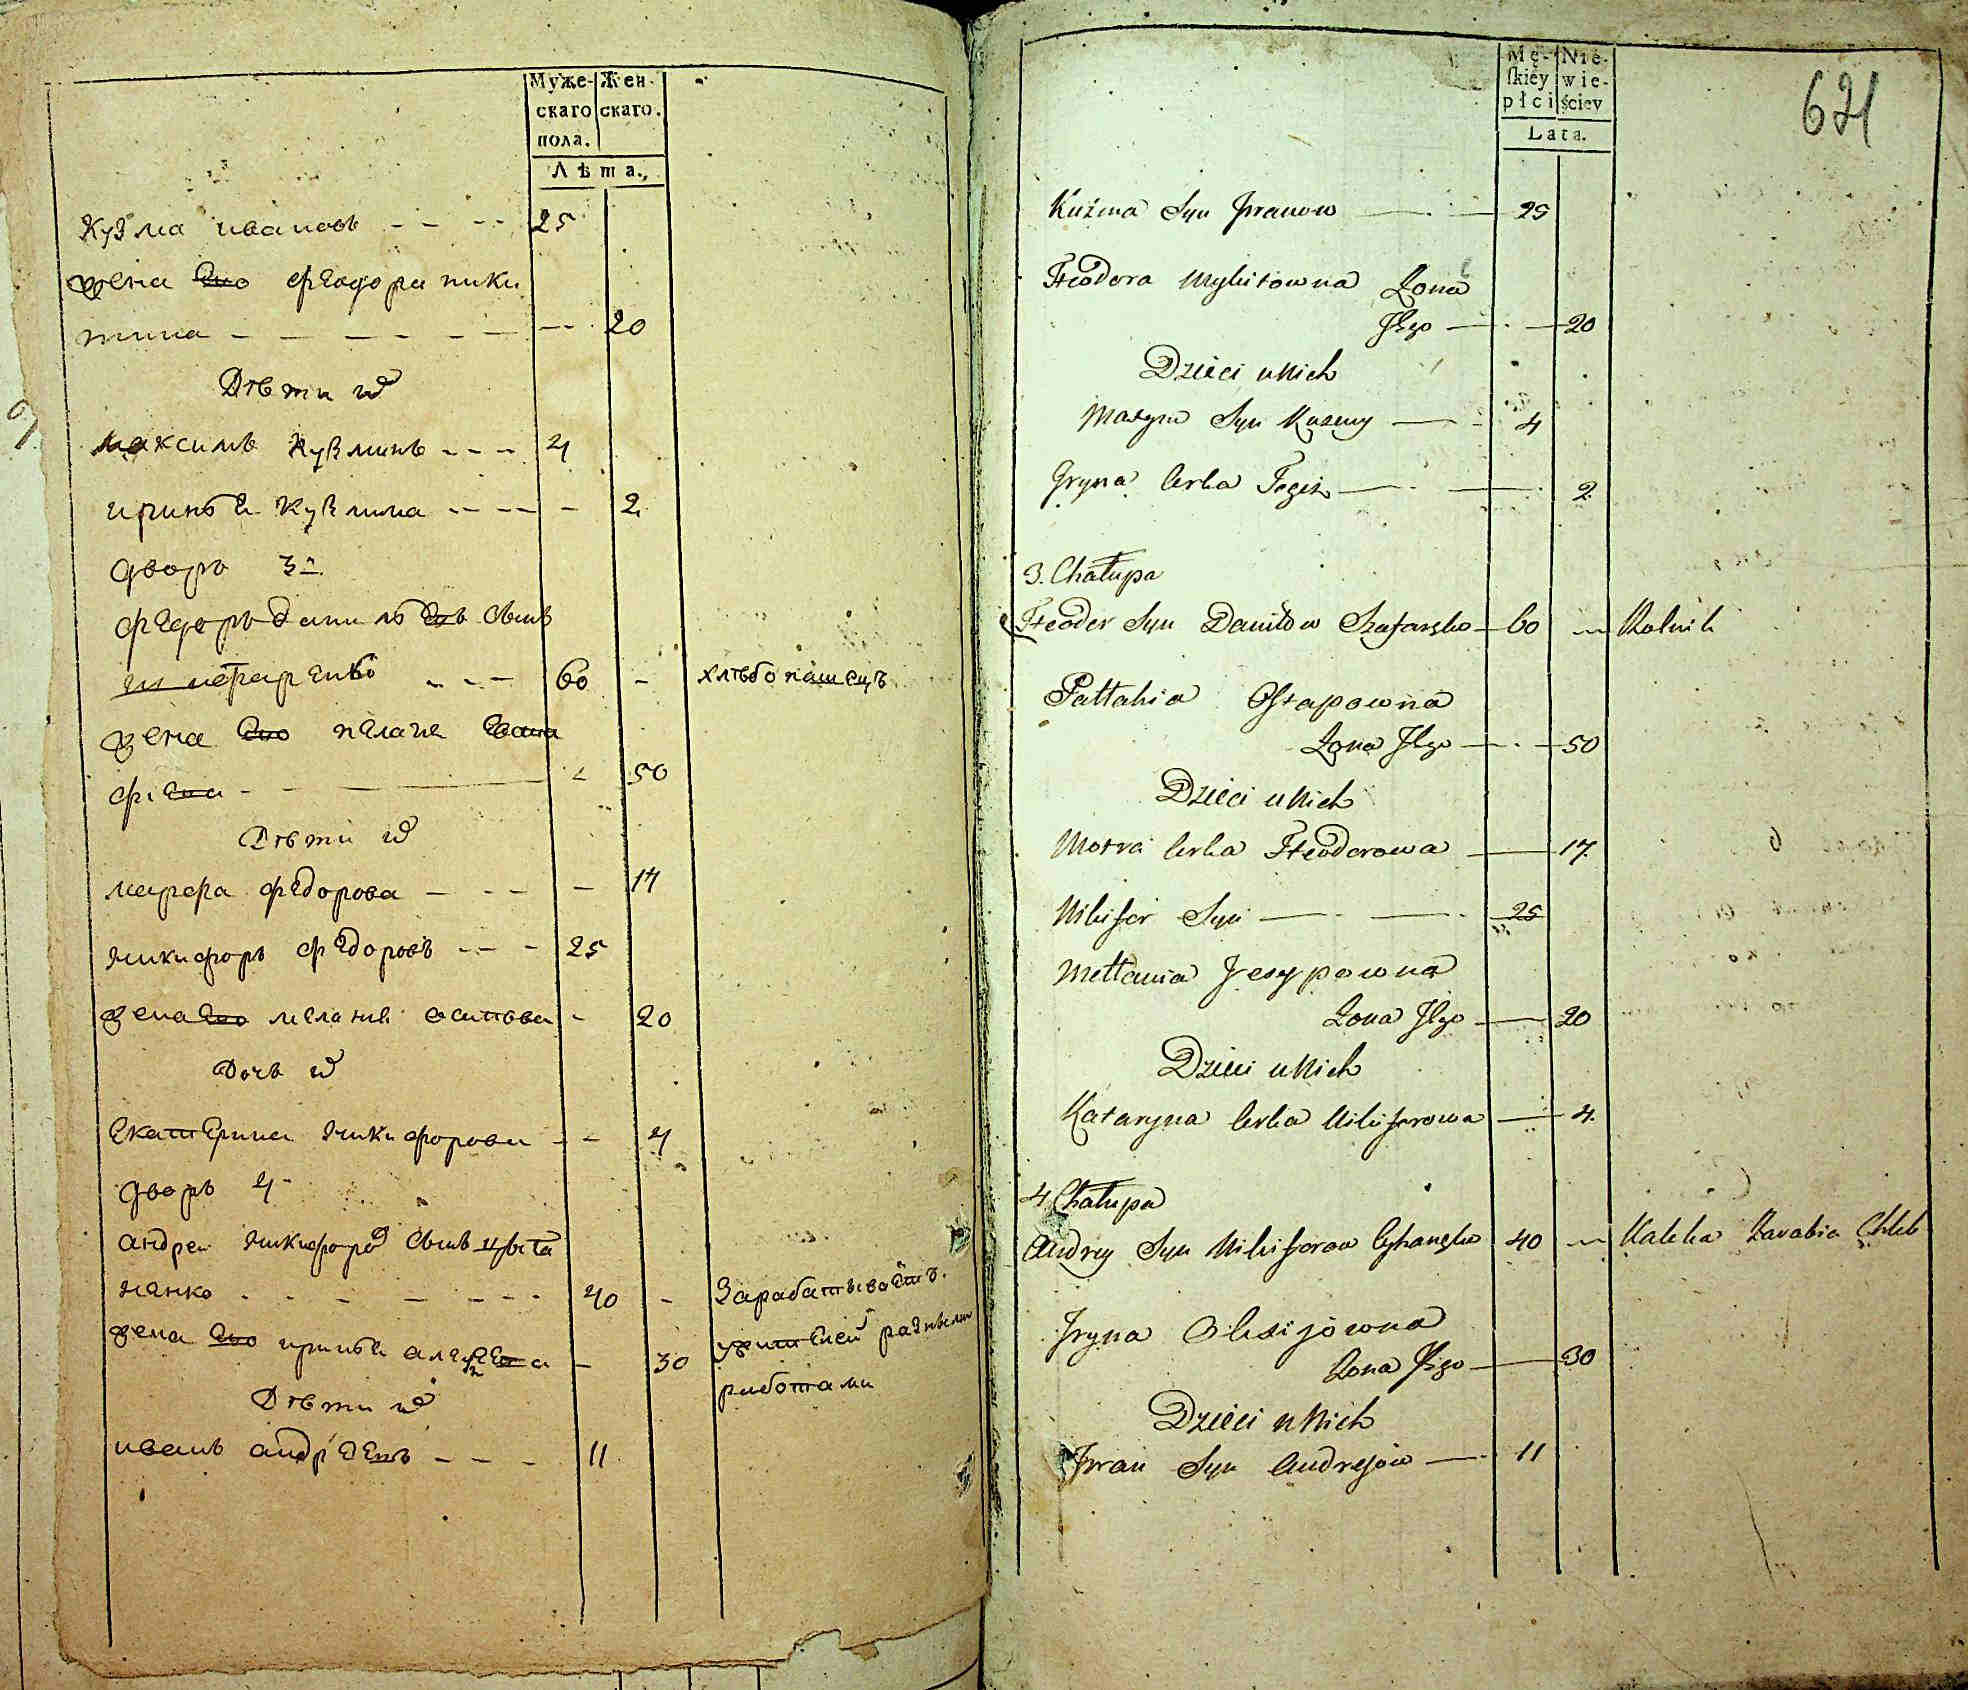 Муже-
скаго
пола.
Жен-
скаго.
Лѣта.
кузма ивановъ - - - - 25
жена его феодора ники
тина - - - - - - - - 20
Дѣти ихъ
максимъ кузминъ - - - 4
иринея кузмина - - - - - 2
дворъ 3й
федоръ данилѣевъ сынъ
60 - хлѣбопашецъ
жена его пелагея
- - - 50
Дѣти ихъ
марфа федорова - - - - 17
никифоръ федоровъ - - - 25
жена его меланія осипова - 20
Дочь ихъ
Екатерина никифорова - - 4
дворъ 4
андрей никифоровъ сынъ цыга
ненко - - - - - - - 40 - Зарабатываетъ
жена его иринея алексеева - 30 разными
работами
Дѣти ихъ
иванъ андрѣевъ - - - 11
Mę-
skiéy
płci
Nie-
wie-
ściey
Lata.
621
Kuźma Syn Jwanow — 25
Fteodora Mykitowna Żona
Jego — 20
Dzieci u Nich
Maxym Syn Kuzmy — 4
Jryna Crka Tegoż — 2
3. Chałupa
Fteoder Syn Daniłow — 60 — Rolnik
Pałłahia Ostapowna
Żona Jego — 50
Dzieci u Nich
Motra Crka Fteodorowa — 17
Nikifor Syn — 25
Mełłania Jesypowna
Żona Jego — 20
Dzieci u Nich
Kataryna Crka Nikiforowa — 4
4 Chałupa
Andrey Syn Nikiforow Cyhanęko 40 — Kaleka Zarabia Chleb
Jryna Olexijowna
Żona Jego — 30
Dzieci u Nich
Jwan Syn Andrejów — 11